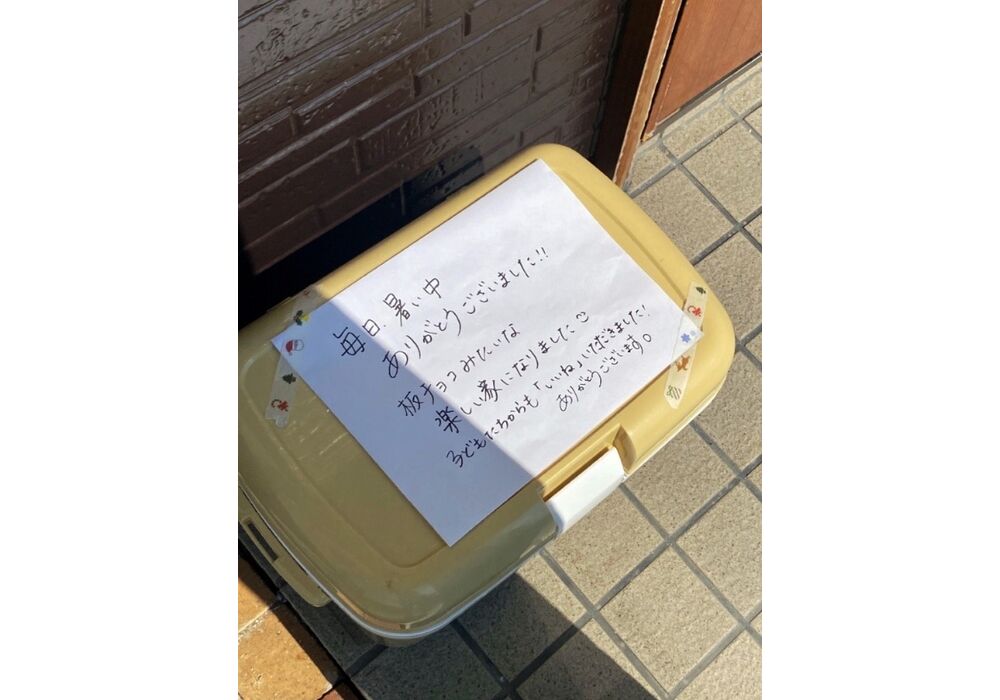 毎日、暑い中
ありがとうございました!!
板チョコみたいな
楽しい家になりました
子どもたちからも「いいね」いただきました!
ありがとうございます。